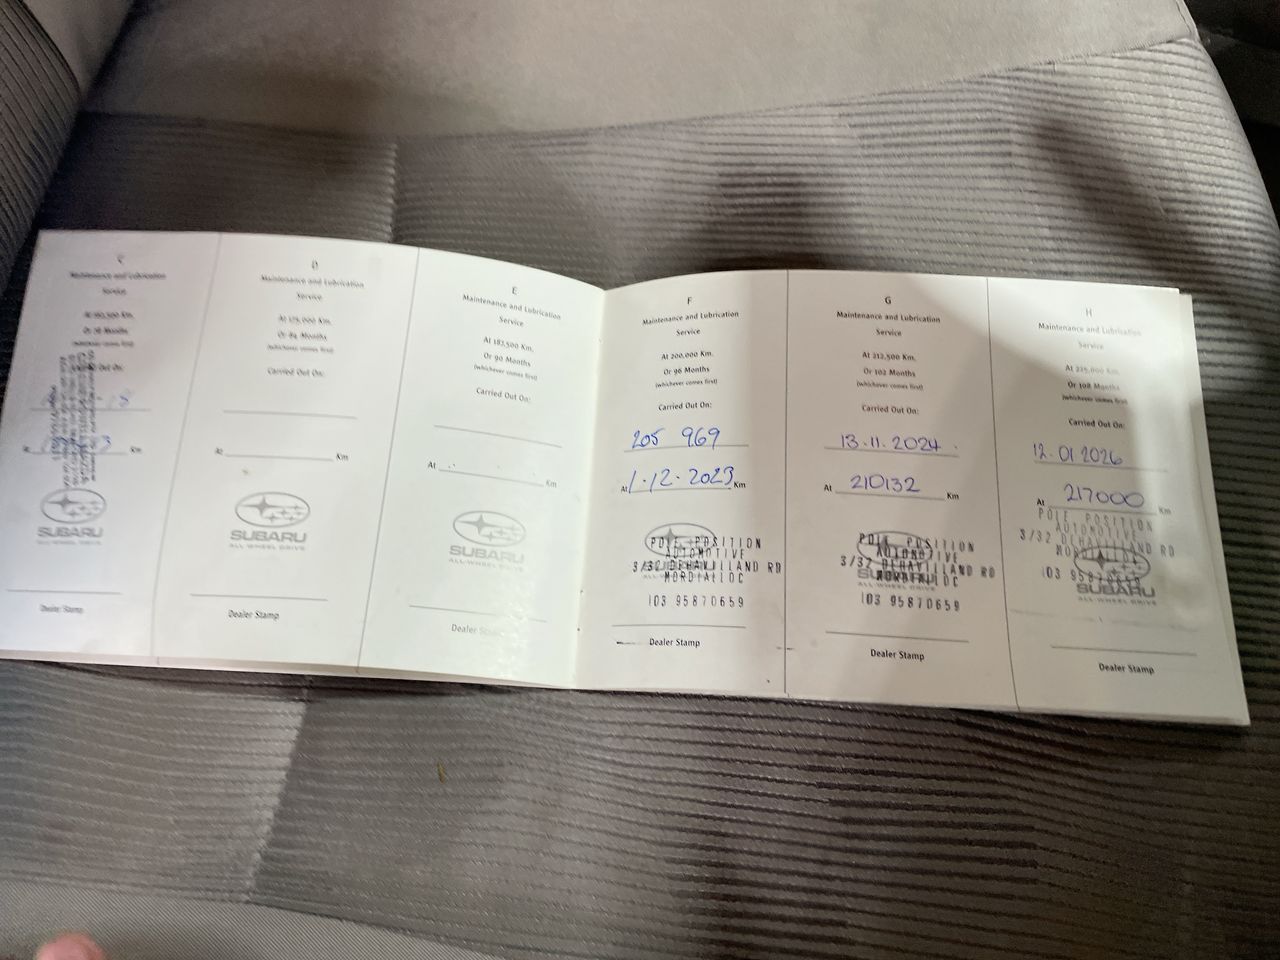 C
Maintenance and Lubrication
Service
At 162,500 Km.
Or 78 Months
(whichever comes first)
Out On:
At
Km
SUBARU
ALL-WHEEL DRIVE
Dealer Stamp
D
Maintenance and Lubrication
Service
At 175,000 Km.
Or 84 Months
(whichever comes first)
Carried Out On:
At
Km
SUBARU
ALL-WHEEL DRIVE
Dealer Stamp
E
Maintenance and Lubrication
Service
At 187,500 Km.
Or 90 Months
(whichever comes first)
Carried Out On:
At
Km
SUBARU
ALL-WHEEL DRIVE
Dealer Stamp
F
Maintenance and Lubrication
Service
At 200,000 Km.
Or 96 Months
(whichever comes first)
Carried Out On:
205 969
At 1.12.2023 Km
POLE POSITION
AUTOMOTIVE
3/32 DEHAVILLAND RD
MORDIALLOC
03 95870659
Dealer Stamp
G
Maintenance and Lubrication
Service
At 212,500 Km.
Or 102 Months
(whichever comes first)
Carried Out On:
13.11.2024
At 210132 Km
POLE POSITION
AUTOMOTIVE
3/32 DEHAVILLAND RD
SUBARU
MORDIALLOC
03 95870659
Dealer Stamp
H
Maintenance and Lubrication
Service
At 225,000 Km.
Or 108 Months
(whichever comes first)
Carried Out On:
12.01.2026
At 217000 Km
POLE POSITION
AUTOMOTIVE
3/32 DEHAVILLAND RD
MORDIALLOC
03 95870659
SUBARU
ALL-WHEEL DRIVE
Dealer Stamp